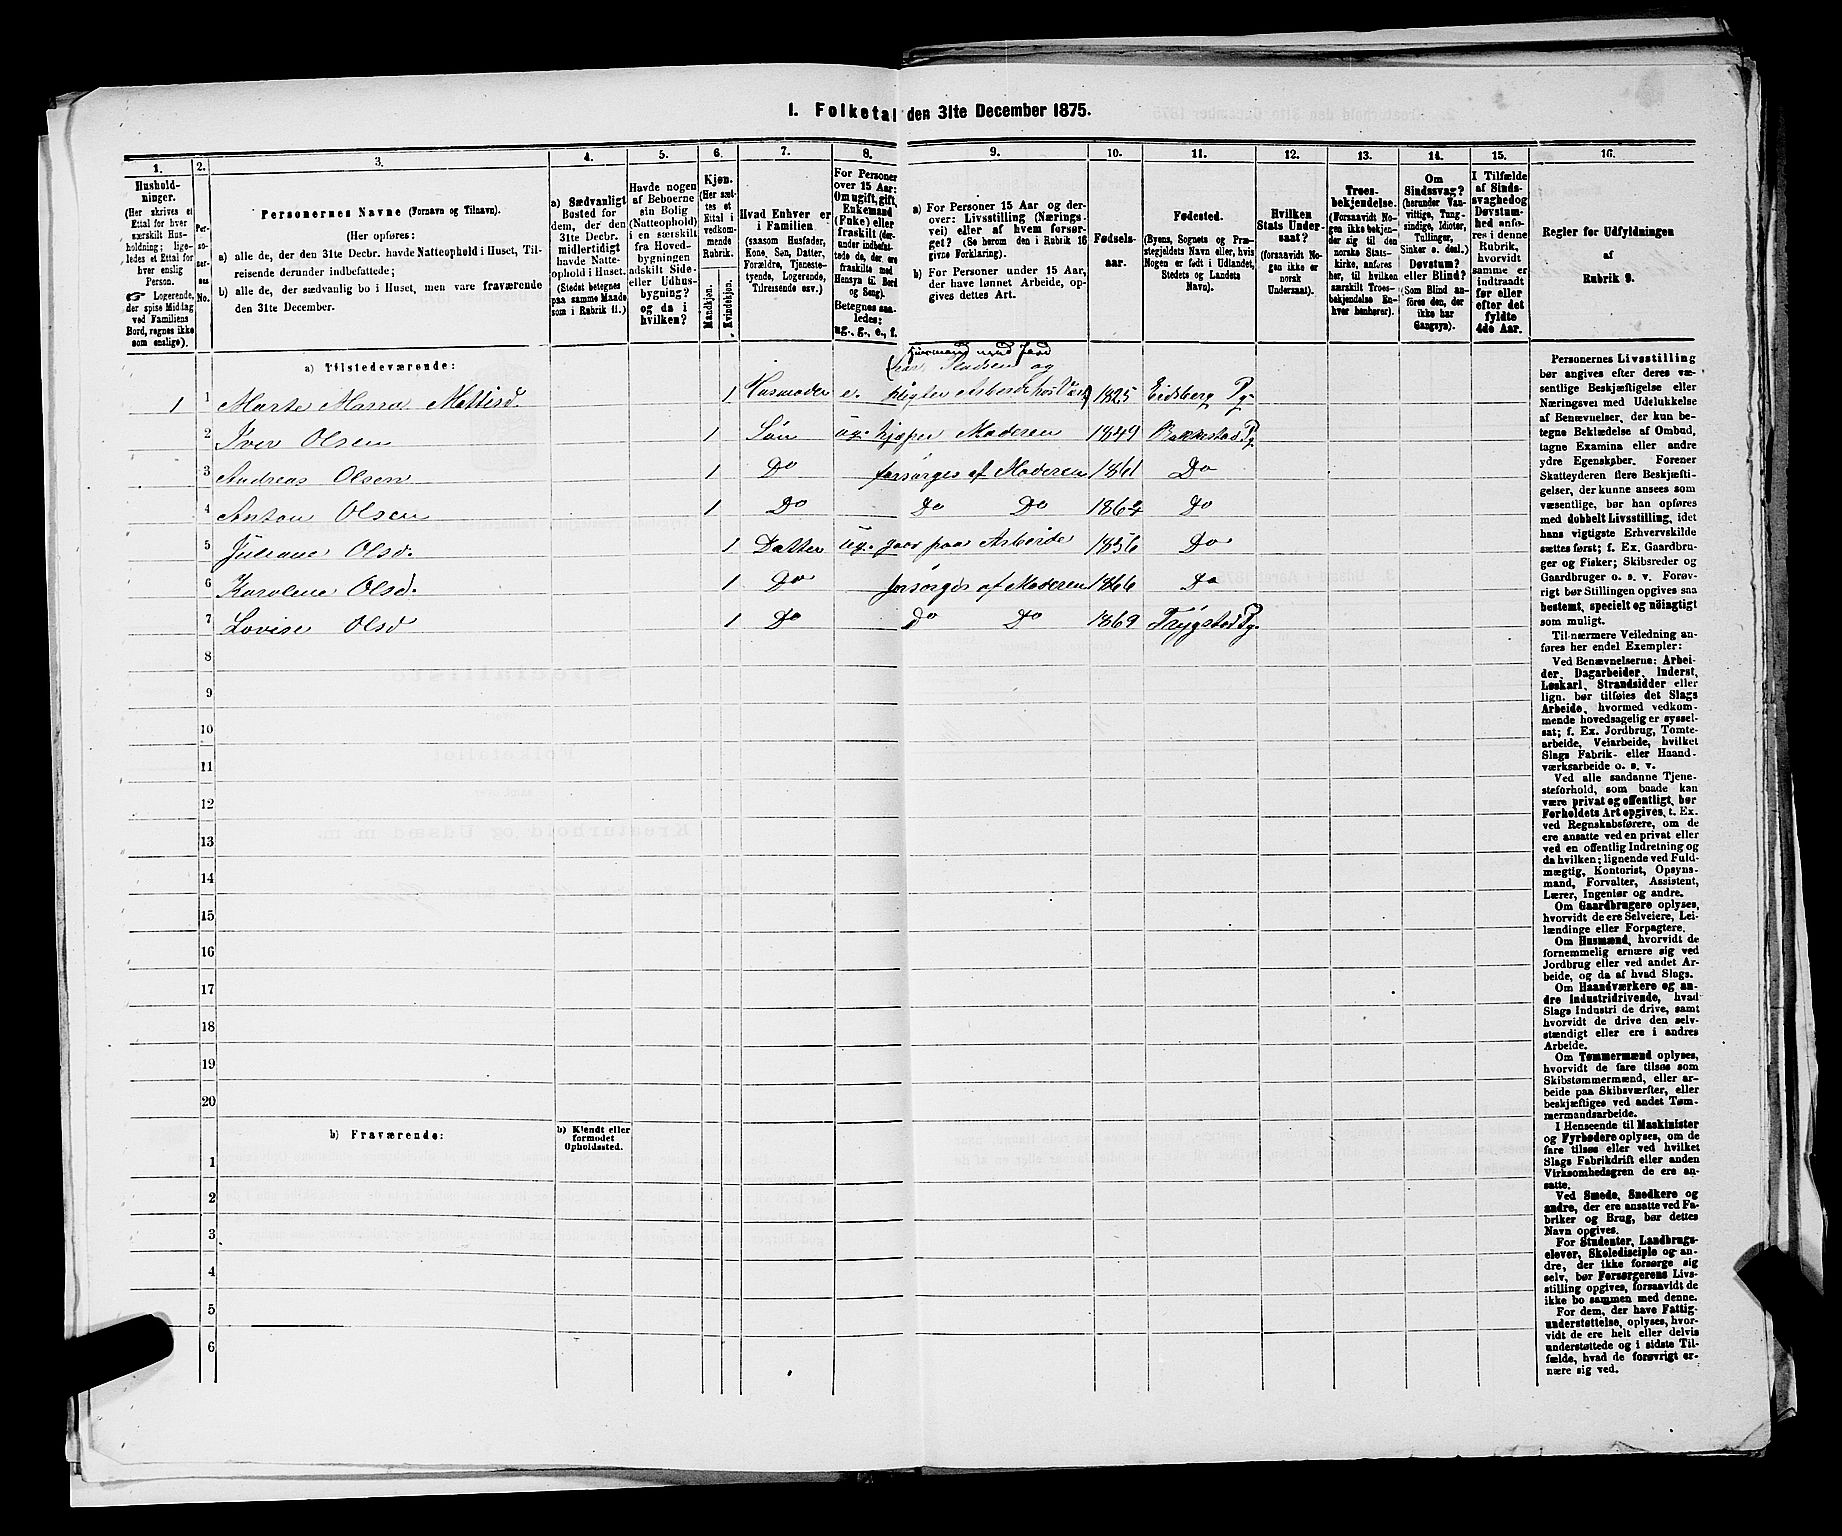 1. Folketal den 31te December 1875.
1. 2. 3. 4. 5. 6. 7. 8. 9. 10. 11. 12. 13. 14. 15. 16.
Hushold-
ninger.
(Her skrives et
Ettal for hver
særskilt Hus-
holdning; lige-
ledes et Ettal for
hver enslig
Person.
☞ Logerende,
der spise Middag
ved Familiens
Bord, regnes ikke
som enslige).
Per-
so-
ner-
nes
No.
Personernes Navne (Fornavn og Tilnavn).
(Her opføres:
a) alle de, der den 31te Decbr. havde Natteophold i Huset, Til-
reisende derunder indbefattede;
b) alle de, der sædvanlig bo i Huset, men vare fraværende
den 31te December.
a) Sædvanligt
Bosted for
dem, der den
31te Decbr.
midlertidigt
havde Natte-
ophold i Huset.
(Stedet betegnes
paa samme Maade
som i Rubrik 11.)
Havde nogen
af Beboerne
sin Bolig
(Natteophold)
i en særskilt
fra Hoved-
bygningen
adskilt Side-
eller Udhus-
bygning?
og da i
hvilken?
Kjøn.
(Her sæt-
tes et
Ettal i
vedkom-
mende
Rubrik.
Mandkjøn.
Kvindekjøn.
Hvad Enhver er
i Familien
(saasom Husfader,
Kone, Søn, Datter,
Forældre, Tjeneste-
tyende, Logerende,
Tilreisende osv.)
For Personer
over 15 Aar:
Om ugift, gift,
Enkemand
(Enke) eller
fraskilt (der-
under indbefat-
tede de, der ere
fraskilte med
Hensyn til Bord
og Seng).
Betegnes saa-
ledes:
ug., g., e., f.
a) For Personer over 15 Aar og der-
over: Livsstilling (Nærings-
vei) eller af hvem forsør-
get? (Se herom den i Rubrik 16
givne Forklaring).
b) For Personer under 15 Aar,
der have lønnet Arbeide, op-
gives dettes Art.
Fødsels-
aar.
Fødested.
(Byens, Sognets og Præ-
stegjeldets Navn eller, hvis
Nogen er født i Udlandet,
Stedets og Landets
Navn).
Hvilken
Stats Under-
saat?
(forsaavidt No-
gen ikke er
norsk
Undersaat).
Troes-
bekjendelse.
(Forsaavidt No-
gen ikke bekjen-
der sig til den
norske Stats-
kirke, anføres
her, til hvilken
særskilt Troes-
bekjendelse En-
hver henhører).
Om
Sindssvag?
(herunder Van-
vittige, Tung-
sindige, Idioter,
Tullinger,
Sinker o. desl.).
Døvstum?
eller Blind?
(Som Blind an-
føres den, der
ikke har
Gangsyn).
I Tilfælde
af Sinds-
svaghed og
Døvstum-
hed anfø-
res i denne
Rubrik,
hvorvidt
samme er
indtraadt
før eller
efter det
fyldte
4de Aar.
Regler for Udfyldningen
af
Rubrik 9.
a) Tilstedeværende:
1 1 Marte Maria Mattisd. 1 Husmoder e. 1825 Eidsberg Pg.
2 Iver Olsen 1 Søn ug. hjælper Moderen 1849 Rakkestad Pg.
3 Andreas Olsen 1 Do forsørges af Moderen 1861 Do
4 Anton Olsen 1 Do Do Do 1864 Do
5 Juliane Olsd. 1 Datter ug. gaar paa Arbeide 1856 Do
6 Karolene Olsd. 1 Do forsørges af Moderen 1866 Do
7 Lovise Olsd 1 Do Do Do 1869 Trygstad Pg.
8
9
10
11
12
13
14
15
16
17
18
19
20
b) Fraværende:
b) Kjendt eller
formodet
Opholdssted.
1
2
3
4
5
6
Personernes Livsstilling
bør angives efter deres væ-
sentlige Beskjæftigelse eller
Næringsvei med Udelukkelse
af Benævnelser, der kun be-
tegne Beklædelse af Ombud,
tagne Examina eller andre
ydre Egenskaber. Forener
Skatteyderen flere Beskjæfti-
gelser, der kunne ansees som
væsentlige, bør han opføres
med dobbelt Livsstilling, idet
hans vigtigste Erhvervskilde
sættes først; f. Ex. Gaardbru-
ger og Fisker; Skibsreder og
Gaardbruger o. s. v. Forøv-
rigt bør Stillingen opgives saa
bestemt, specielt og nøiagtigt
som muligt.
Til nærmere Veiledning an-
føres her endel Exempler:
Ved Benævnelserne: Arbei-
der, Dagarbeider, Inderst,
Løskarl, Strandsidder eller
lign. bør tilføies det Slags
Arbeide, hvormed vedkom-
mende hovedsagelig er syssel-
sat; f. Ex. Jordbrug, Tomte-
arbeide, Veiarbeide, hvilket
Slags Fabrik- eller Haand-
værksarbeide o. s. v.
Ved alle saadanne Tjene-
steforhold, som baade kan
være privat og offentligt, bør
Forholdets Art opgives, t. Ex.
ved Regnskabsførere, om de
ere ansatte ved en privat eller
ved en offentlig Indretning og
da hvilken; lignende ved Fuld-
mægtig, Kontorist, Opsyns-
mand, Forvalter, Assistent,
Lærer, Ingeniør og andre.
Om Gaardbrugere oplyses,
hvorvidt de ere Selveiere, Lei-
lændinge eller Forpagtere.
Om Husmænd, hvorvidt de
fornemmelig ernære sig ved
Jordbrug eller ved andet Ar-
beide, og da af hvad Slags.
Om Haandværkere og an-
dre Industridrivende, hvad
Slags Industri de drive, samt
hvorvidt de drive den selv-
stændigt eller ere i andres
Arbeide.
Om Tømmermænd oplyses,
hvorvidt de fare tilsøs som
Skibstømmermænd, eller ar-
beide paa Skibsværfter, eller
beskjæftiges ved andet Tøm-
mermandsarbeide.
I Henseende til Maskinister
og Fyrbødere oplyses, om de
fare tilsøs eller ved hvilket
Slags Fabrikdrift eller anden
Virksomhedsgren de ere an-
satte.
Ved Smede, Snedkere og
andre, der ere ansatte ved Fa-
briker og Brug, bør dettes
Navn opgives.
For Studenter, Landbrugs-
elever, Skoledisciple og an-
dre, der ikke forsørge sig
selv, bør Forsørgerens Livs-
stilling opgives, forsaavidt de
ikke bo sammen med denne.
For dem, der have Fattig-
understøttelse, oplyses, hvor-
vidt de ere helt eller delvis
understøttede og i sidste Til-
fælde, hvad de forøvrigt er-
nære sig ved.